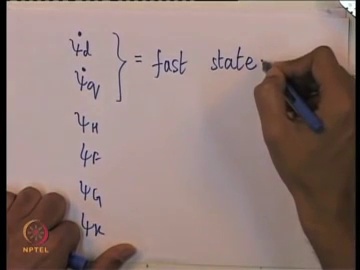 ψ̇d
ψ̇q } = fast state
ψH
ψF
ψG
ψK
NPTEL